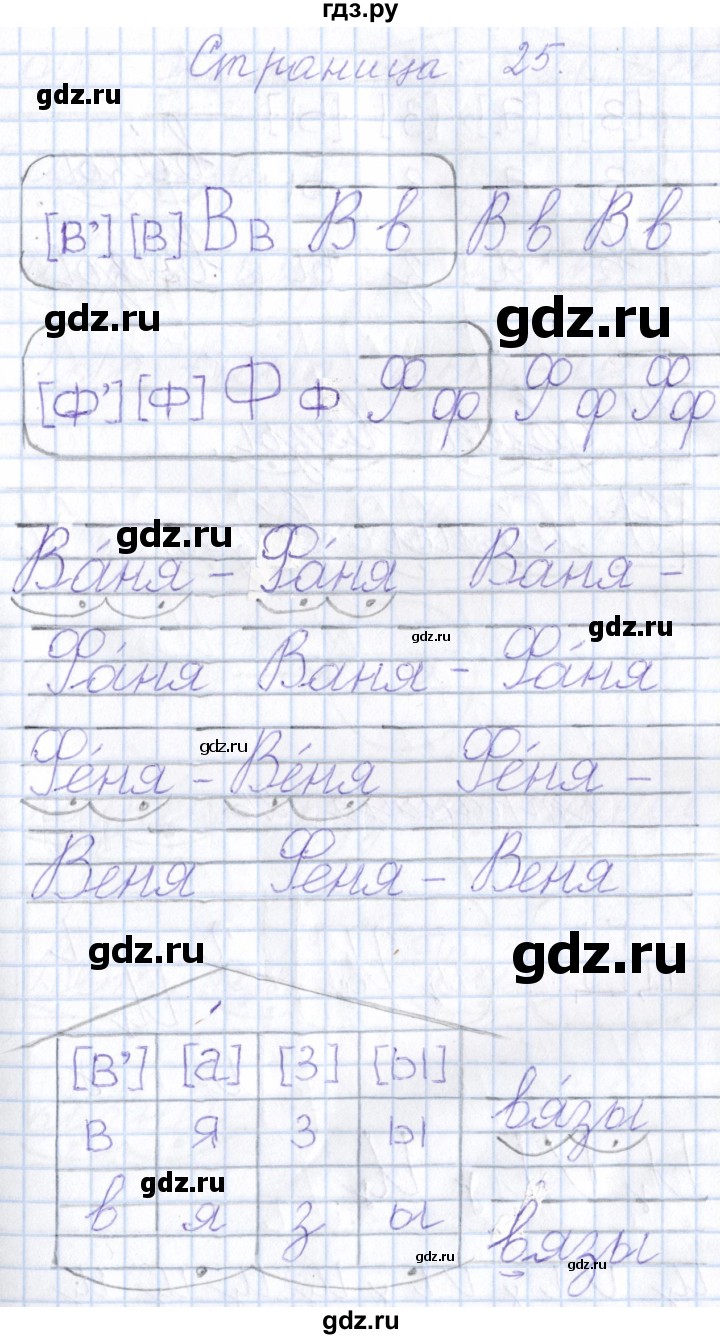 гдз.ру
Страница 25.
gdz.ru
[в’] [в] В в В в В в В в
gdz.ru gdz.ru
[ф’] [ф] Ф ф Ф ф Ф ф Ф ф
gdz.ru
Ва́ня – Фа́ня Ва́ня –
gdz.ru gdz.ru
Фа́ня Ваня – Фа́ня
gdz.ru
Фе́ня – Ве́ня Фе́ня –
Веня Феня – Веня
gdz.ru gdz.ru
[в’] [а́] [з] [ы]
в я з ы вя́зы
gdz.ru
в я з ы вязы
gdz.ru gdz.ru
gdz.ru